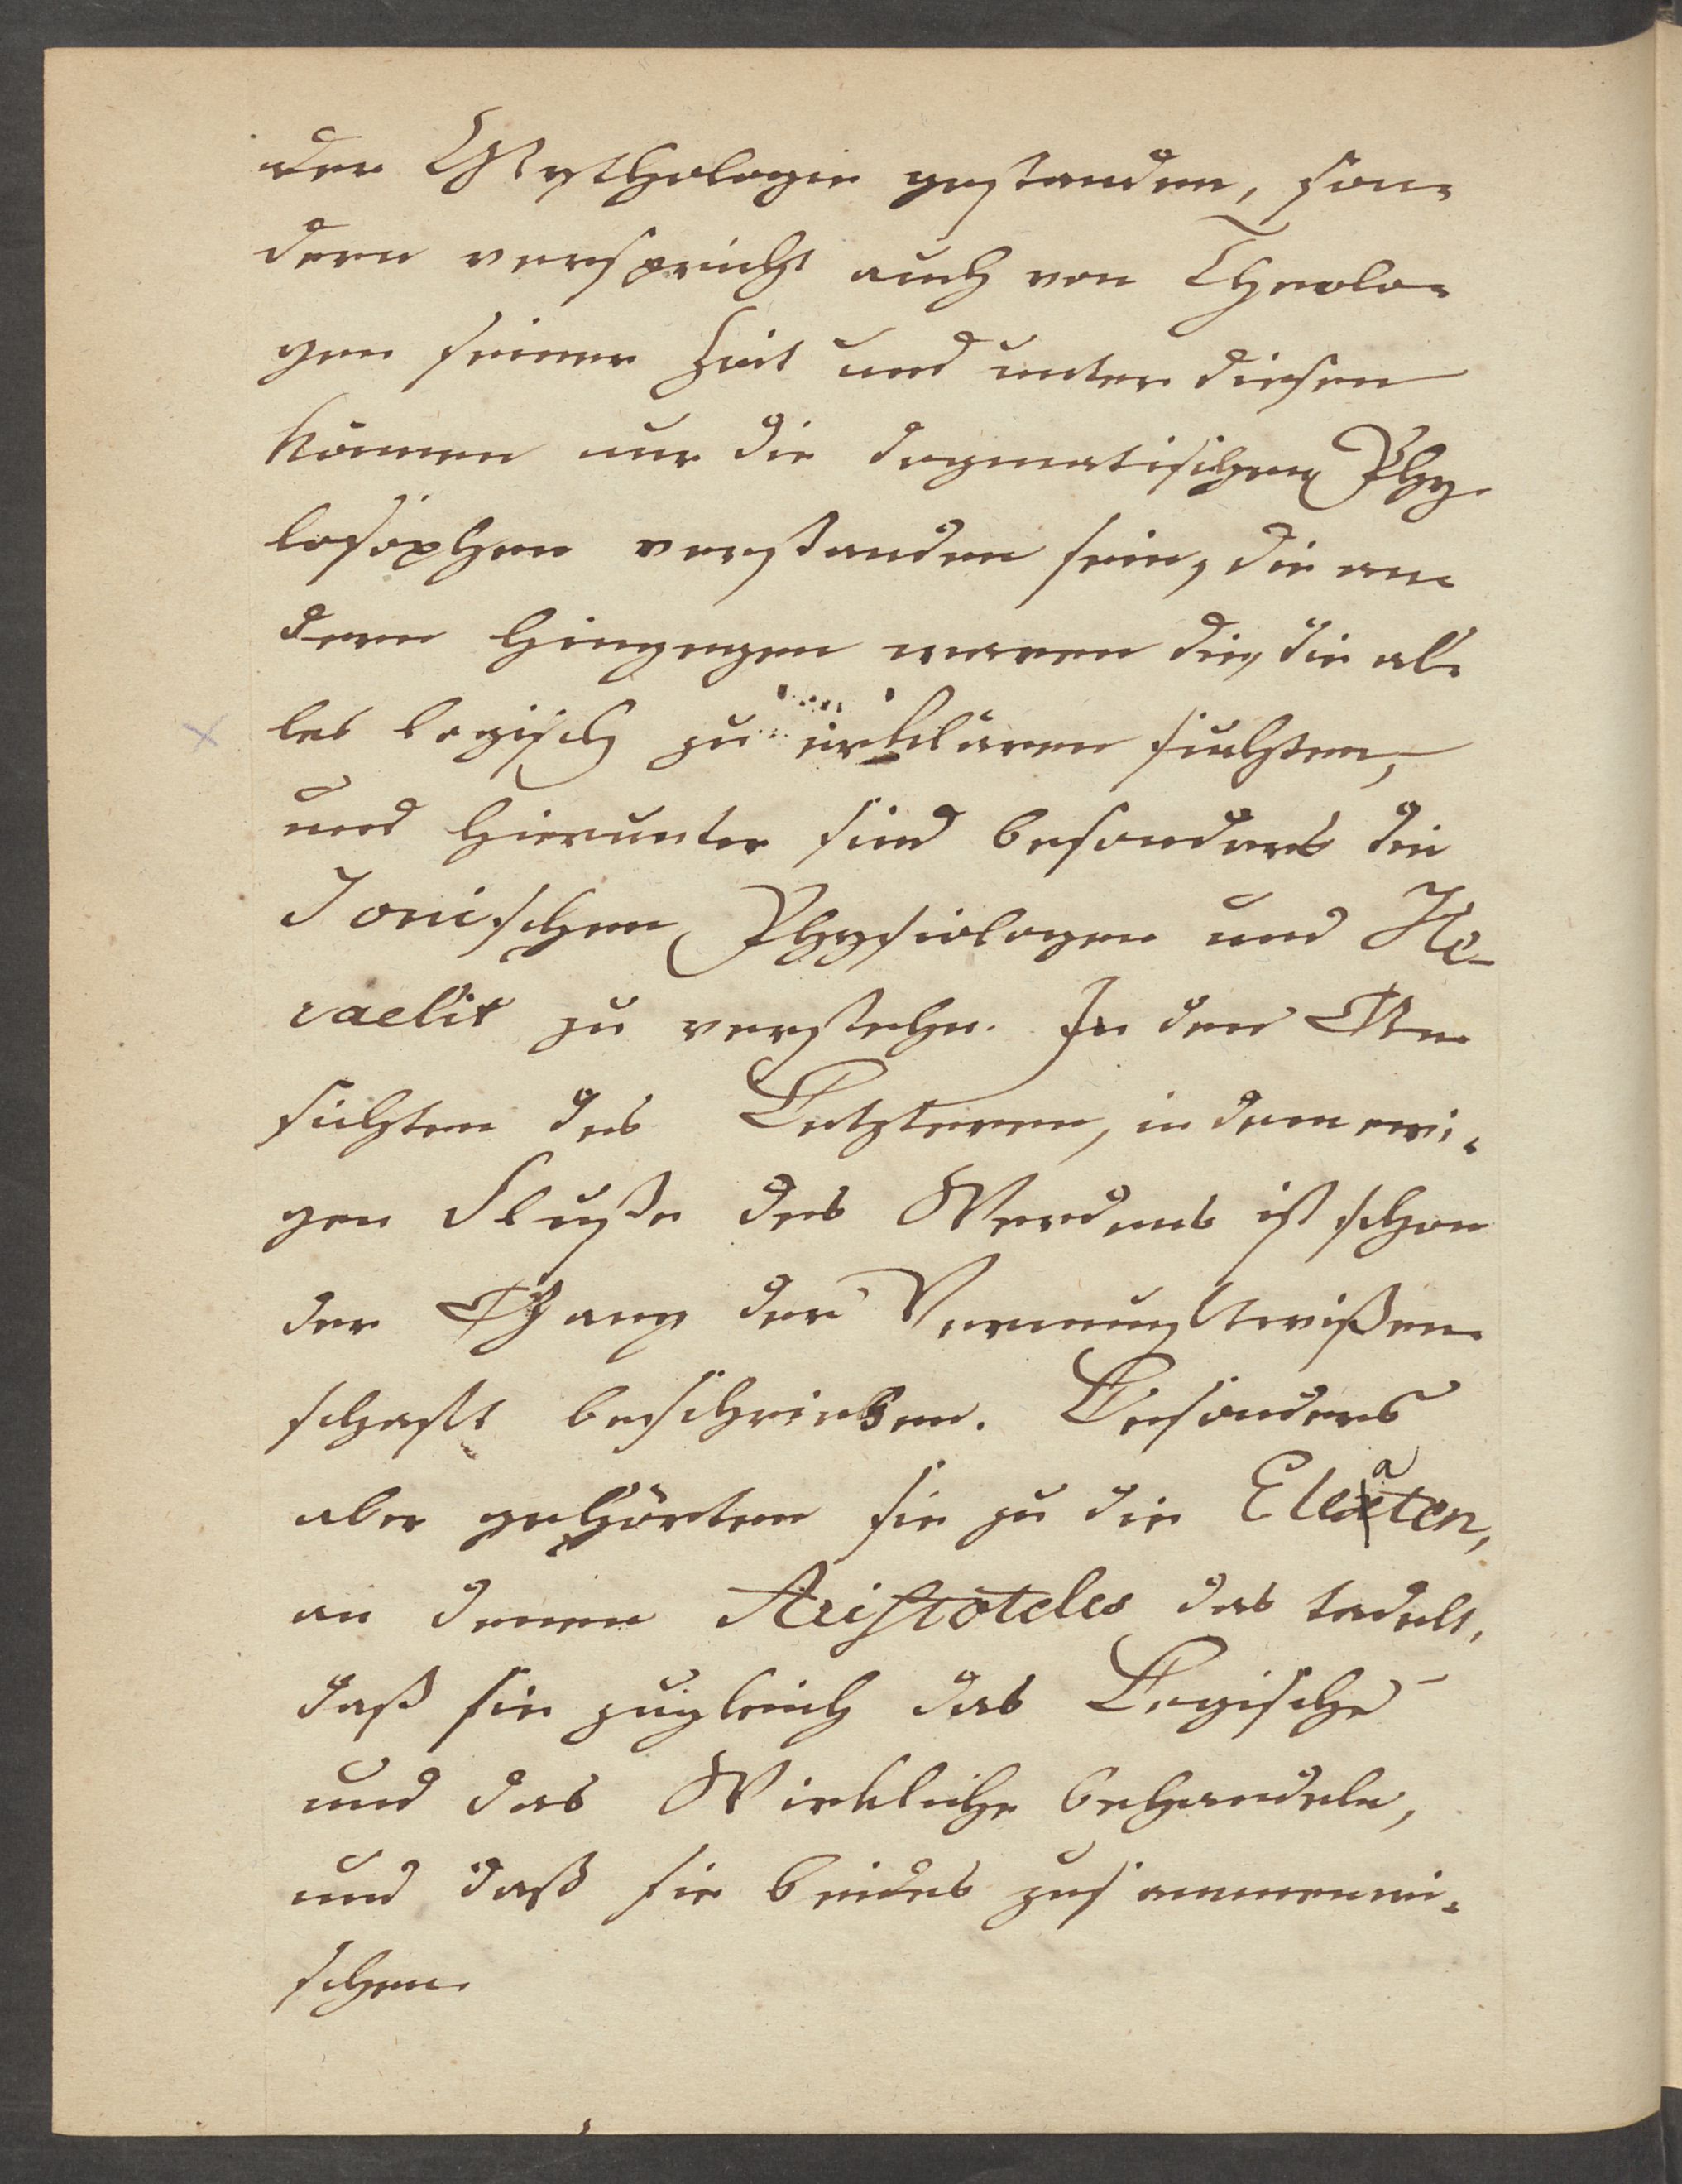 der Mythologie gestanden, son-
dern verspricht auch von Theolo-
gen seiner Zeit und unter diesen
können nur die dogmatischen Phy-
losophen verstanden sein, die an-
dern hingegen waren die, die al-
les logisch zu erklären suchten,
und hierunter sind besonders die
Ionischen Physiologen und He-
raclit zu verstehn. In den An-
sichten des Letzteren, in dem ewi-
gen Fluße des Werdens ist schon
der Gang der Vernunftwißen-
schaft beschrieben. Besonders
aber gehörten sie zu die Eleaten,
an denen Aristoteles das tadelt,
daß sie zugleich das Logische
und das Wirkliche behandeln,
und daß sie beides zusammenmi-
schen